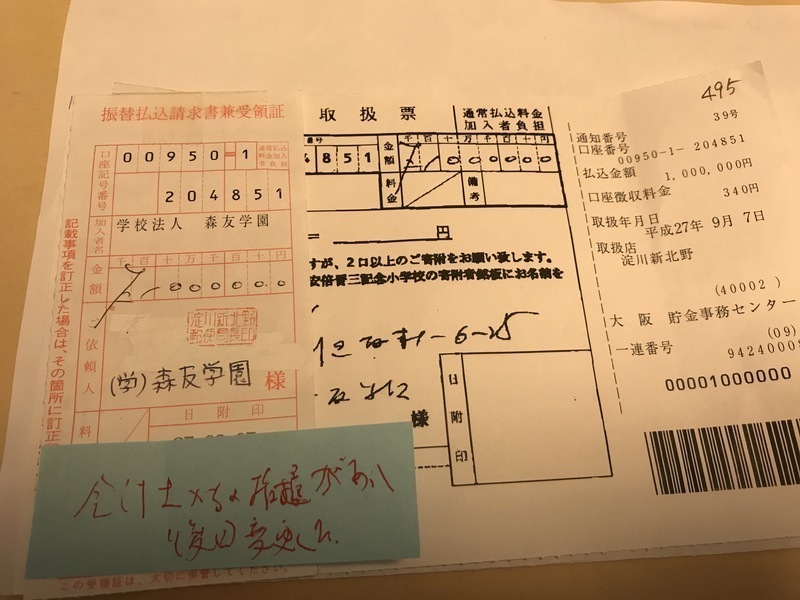 振替払込請求書兼受領証
口座記号番号
00950-1
通常払込料金加入者負担
204851
加入者名
学校法人 森友学園
金額
千百十万千百十円
00000
淀川新北野
郵便局長印
ご依頼人
(学)森友学園
様
日附印
料
記載事項を訂正した場合は、その箇所に訂正
この受領証は、大切に保管してください。
後日変更した
取扱票
通常払込料金
加入者負担
4851
金額
千百十万千百十円
00000
料金
備考
円
すが、2口以上のご寄附をお願い致します。
安倍晋三記念小学校の寄附者銘板にお名前を
-6-
様
日附印
495
39号
通知番号
口座番号
00950-1- 204851
払込金額
1,000,000円
口座徴収料金
340円
取扱年月日
平成27年 9月 7日
取扱店
淀川新北野
(40002)
大阪 貯金事務センター
(09)
一連番号
9424000
00001000000